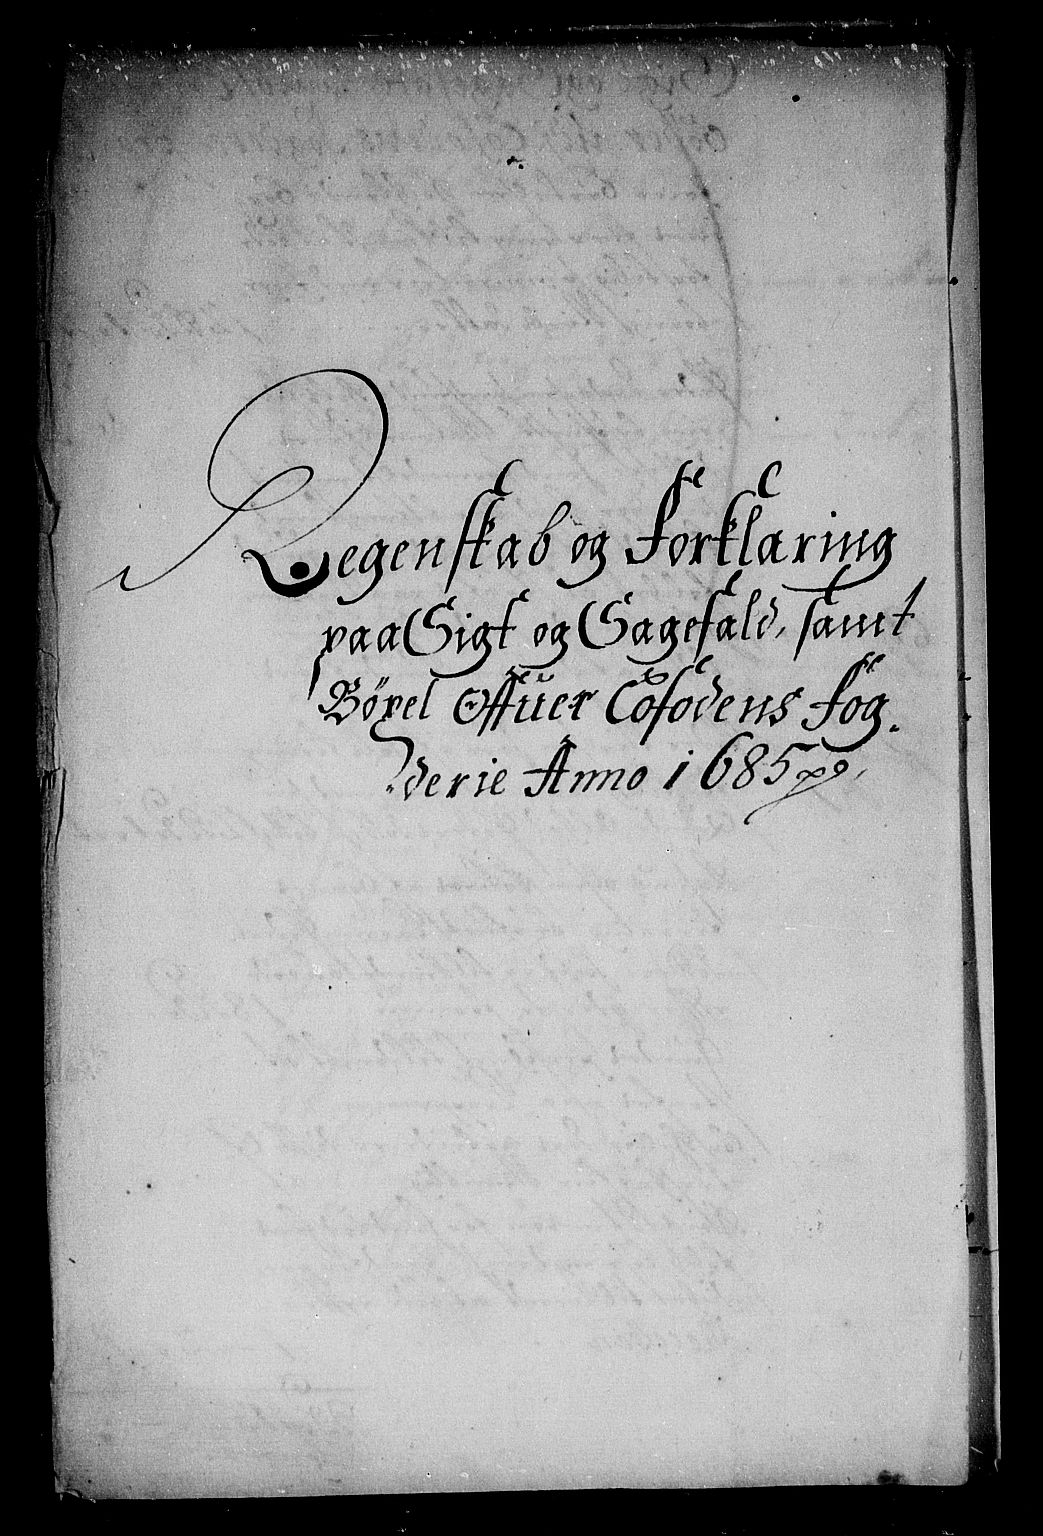 Regenskab og Forklaring
paa Sigt og Sagefald, samt
Böxel Offuer Cofodens Fog-
derie Anno 1685